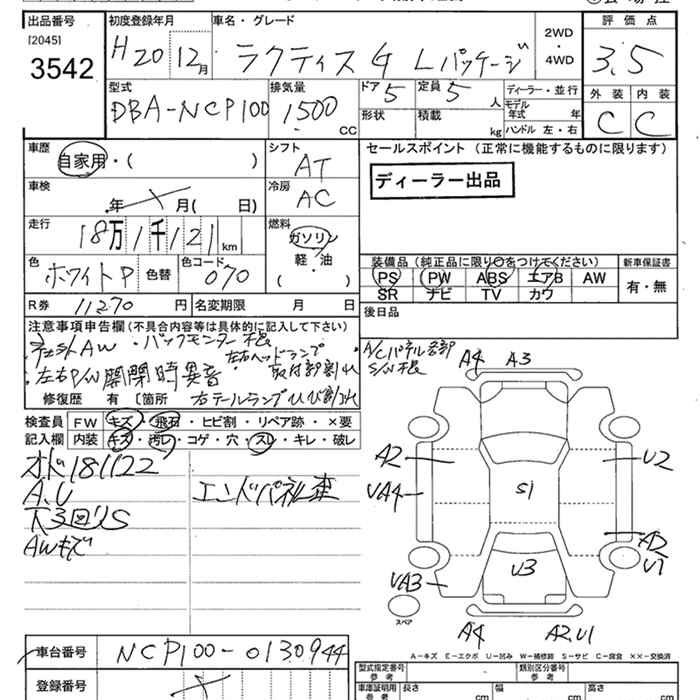 出品番号 初度登録年月 車名・グレード 評価点
[2045]
3542
H20 12月 ラクティス G Lパッケージ 2WD・4WD 3.5
型式 排気量 ドア 5 定員 5 人 ディーラー・並行 外装 内装
DBA-NCP100 1500 CC 形状 積載 kg モデル年式 年 C C
ハンドル 左・右
車歴 シフト セールスポイント (正常に機能するものに限ります)
自家用・( ) AT ディーラー出品
車検 冷房
年 月( 日) AC
走行 燃料
18万1千121km ガソリン
軽・油
( )
装備品 (純正品に限り○をつけてください) 新車保証書
色 ホワイトP 色替 色コード 070
PS PW ABS エアB AW 有・無
SR ナビ TV カワ
R券 11270 円 名変期限 月 日 後日品
注意事項申告欄(不具合内容等は具体的に記入して下さい)
社外AW・バックモニター
左右ヘッドランプ
左右P/W開閉時異音 取付部割れ
修復歴 有 〔箇所 右テールランプひび割れ
A/Cパネル
検査員 FW キズ・飛石・ヒビ割・リペア跡・×要
記入欄 内装 キズ・汚レ・コゲ・穴・スレ・キレ・破レ
オド181122
A.U エンドパネル歪
下3回りS
AWキズ
A4 A3
A2 U2
UA4 S1
A2
U1
UA3 U3
スペア A4 A2,U1
A-キズ E-エクボ U-凹み W-補修跡 S-サビ C-腐食 ××-交換済
車台番号 NCP100-0130944
登録番号
型式指定番号 類別区分番号
車庫証明用 長さ 幅 高さ
参考 cm cm cm